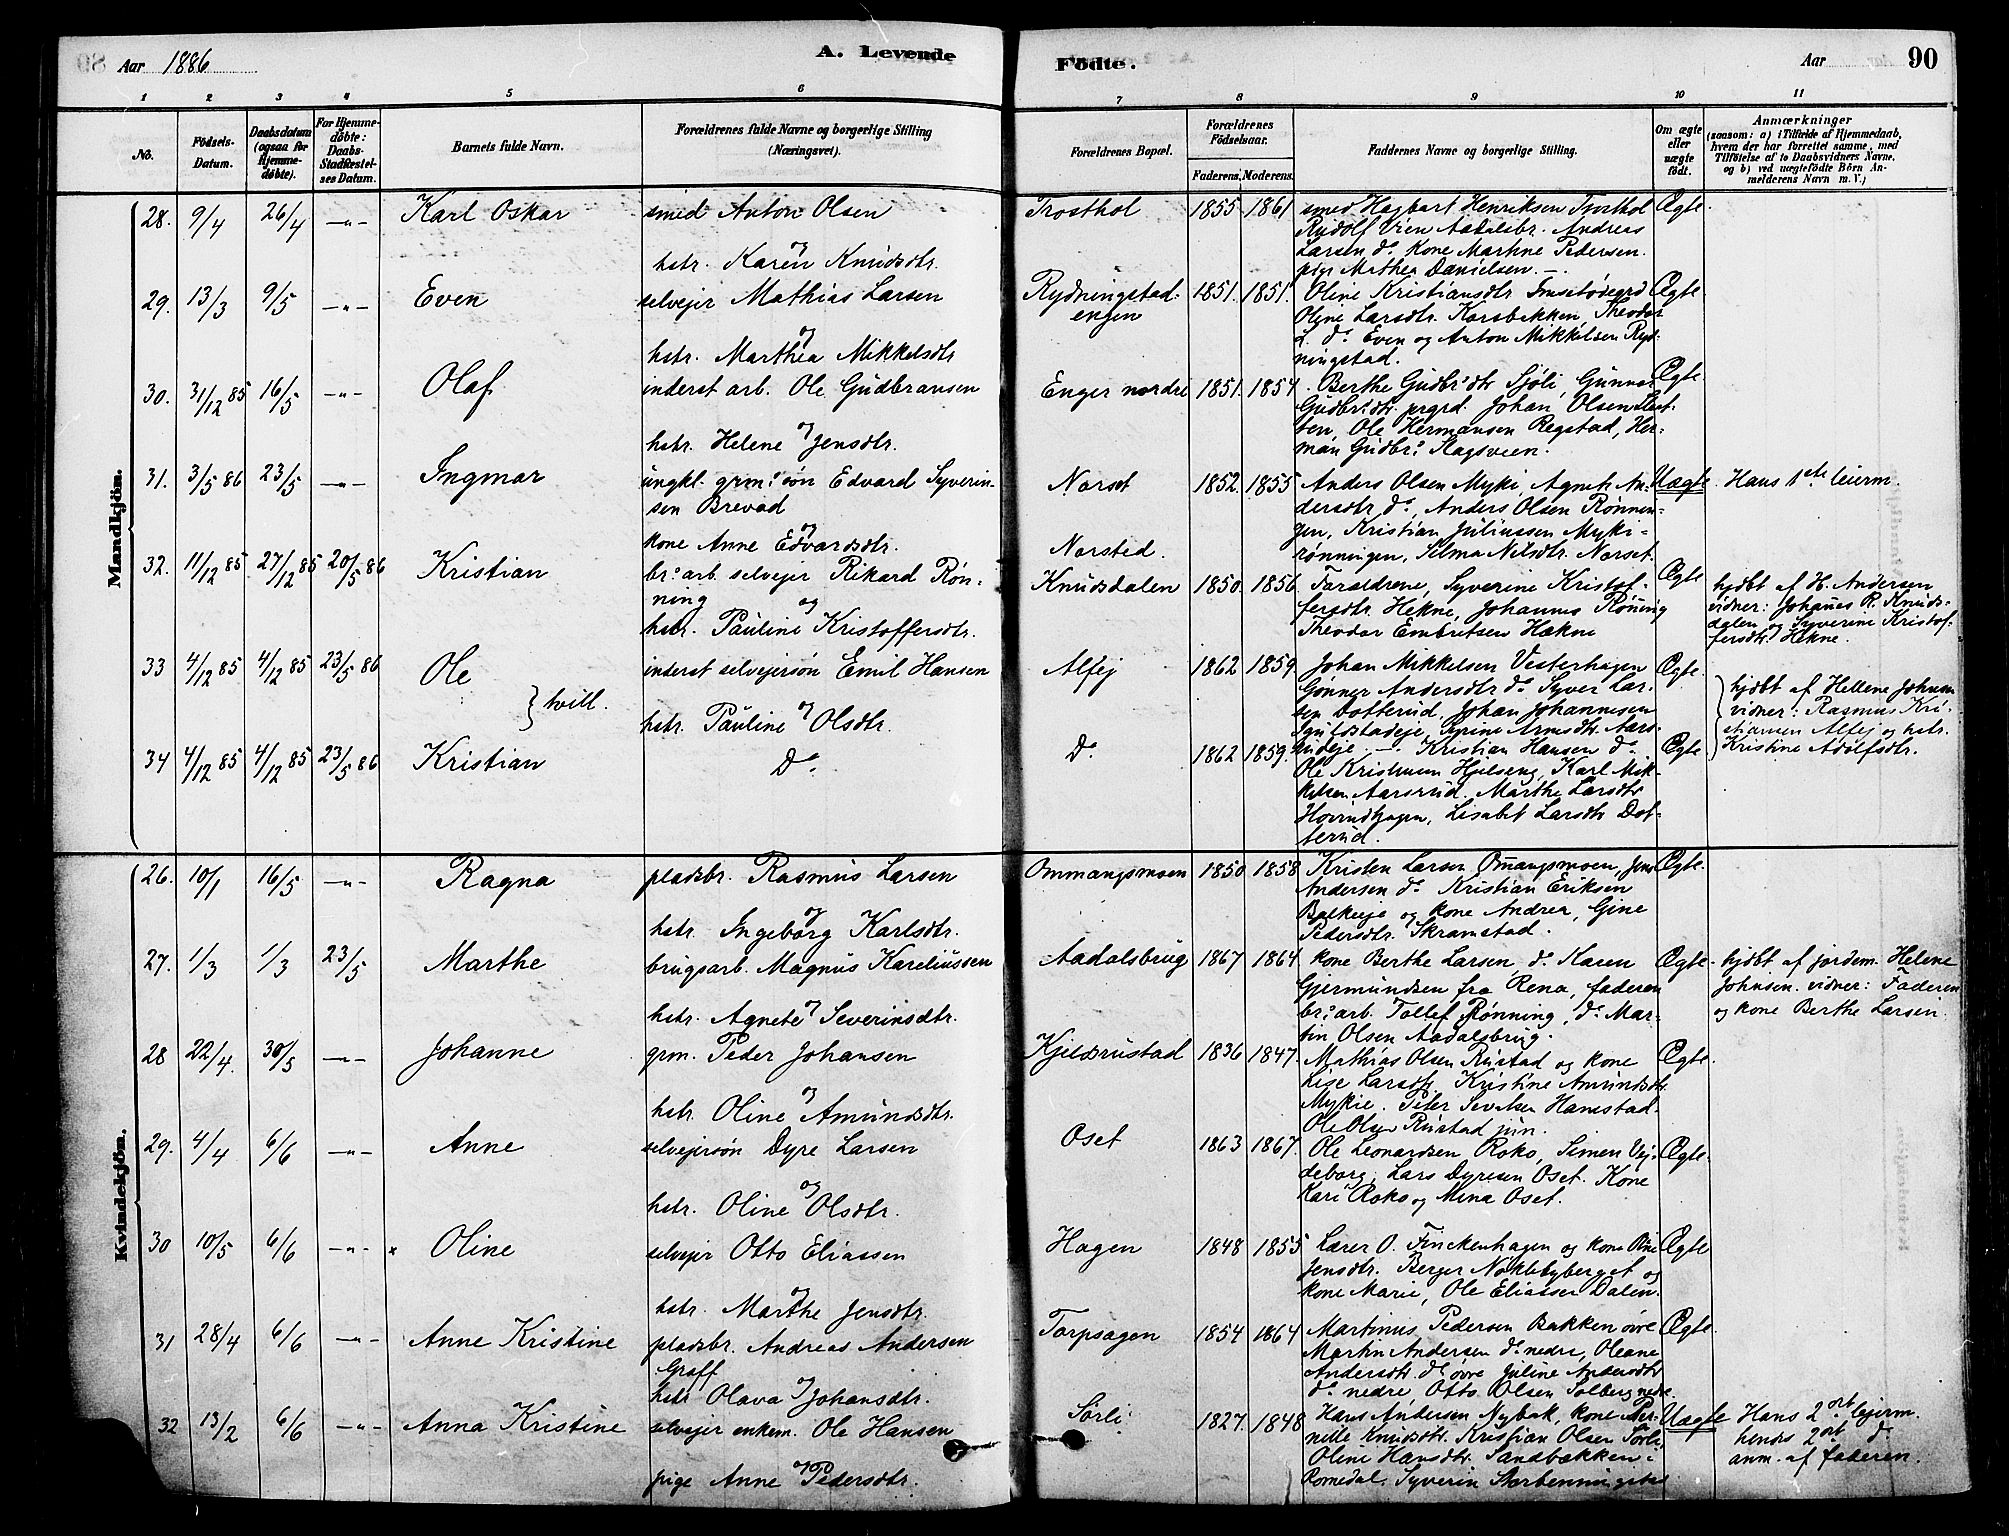 Aar 1886
A. Levende
Födte.
Aar
90
1 2 3 4 5 6 7 8 9 10 11
No.
Födsels-Datum.
Daabsdatum (ogsaa for Hjemme-döbte).
For Hjemme-döbte: Daabs-Stadfæstel-ses Datum.
Barnets fulde Navn.
Forældrenes fulde Navne og borgerlige Stilling (Næringsvei).
Forældrenes Bopæl.
Forældrenes Födselsaar.
Faderens. Moderens.
Faddernes Navne og borgerlige Stilling.
Om ægte eller uægte födt.
Anmærkninger
(saasom: a) i Tilfælde af Hjemmedaab, hvem der har forrettet samme, med Tilföielse af to Daabsvidners Navne, og b) ved uægtefödte Börn An-melderens Navn m. V.)
Mandkjön.
28. 9/4 26/4 -"- Karl Oskar
smed Anton Olsen
og
hstr. Karen Knudsdtr.
Trosthol 1855 1861
smed Hagbart Henriksen Trosthol
Rudolf Vien Aadalsbr. Andreas
Larsen do kone Martine Pedersen
pige Mathea Danielsen.
Ægte.
29. 13/3 9/5 -"- Even
selvejer Mathias Larsen
og
hstr. Marthea Mikkelsdtr
Rydningstad-
engen
1851. 1851.
Oline Kristiansdtr
Oline Larsdtr. Korsbakken, Theodor
L. do Even og Anton Mikkelsen Ryd-
ningstad.
Ægte
30. 31/12 85 16/5 -"- Olaf
inderst arb. Ole Gudbransen
og
hstr. Helene Jensdtr.
Enger nordre 1851. 1854
Berthe Gudbr. dtr Sjöli, Gunnar
Gudbr. dtr. prgrd. Johan Olsen
Ole Hermansen Regstad, Her-
man Gudbr. Slagsveen.
Ægte
31. 3/5 86 23/5 -"- Ingmar
ungkl. grm. sön Edvard Syverin-
sen Brevad
og
kone Anne Edvardsdtr.
Norset
Norsted.
1852. 1855
Anders Olsen Myki, Agnete An-
dersdtr do, Anders Olsen Rönnin-
gen, Kristian Juliussen Myki-
rönningen, Hilma Nilsdtr. Norset.
Uægte. Hans 1ste leierm.
32. 11/12 85 27/12 85 20/5 86 Kristian
br. arb. selvejer Rikard Rön-
ning
og
hstr. Pauline Kristoffersdtr.
Knudsdalen 1850. 1856
Forældrene, Syverine Kristof-
fersdtr. Hekne, Johannes Rönning
Theodor Embretsen Hækne
Ægte
hjdbt af H. Andersen
vidner: Johanes R. Knuds-
dalen og Syverine Kristof-
fersdtr. Hekne.
33 4/12 85 4/12 85 23/5 86 Ole
} tvill.
inderst selvejersön Emil Hansen
og
hstr. Pauline Olsdtr.
Alfej 1862 1859
Johan Mikkelsen Vesterhagen
Gönner Andersdtr do Syver Lar-
sen Dotterud, Johan Johannesen
Ægte.
hjdbt af Hellene Johnsen
vidner: Rasmus Kri-
stiansen Alfej og hstr.
Kristine Adolfsdtr.
34 4/12 85 4/12 85 23/5 86 Kristian
Do.
Do. 1862 1859.
Kristian Hansen do
Ole Kristiansen Hjelseng, Karl Mik-
kelsen Aarsrud. Marthe Larsdtr
Hovindhagen, Lisabet Larsdtr Dot-
terud.
Ægte
Kvindekjön.
26. 10/1 16/5 -"- Ragna
pladsbr. Rasmus Larsen
og
hstr. Ingeborg Karlsdtr.
Ommangsmoen 1850 1858
Kristen Larsen Omangsmoen, Jens
Andersen do Kristian Eriksen
Balkeeje og kone Andrea, Gine
Pedersdtr. Skramstad.
Ægte.
27. 1/3 1/3 23/5 Marthe
brugsarb. Magnus Kareliussen
og
hstr. Agnete Severinsdtr.
Aadalsbrug 1867 1864
kone Berthe Larsen, do Karen
Gjermundsen fra Rena, faderen
br. arb. Tollef Rönning, do Mar-
tin Olsen Aadalsbrug.
Ægte.
hjdbt. af jordem. Helene
Johnsen. vidner: Faderen
og kone Berthe Larsen.
28 22/4. 30/5 -"- Johanne
grm. Peder Johansen
og
hstr. Oline Amundsdtr.
Kjeldsrustad 1836 1847.
Mathias Olsen Rustad og kone
Lise Larsdtr. Kristine Amundsdtr
Mykie. Peter Hamestad.
Ole Olsen Rustad jun.
Ægte.
29. 4/4 6/6 -"- Anne
selvejersön Dyre Larsen
og
hstr. Oline Olsdtr.
Oset 1863 1867.
Ole Leonardsen Roko, Simen Vej-
deborg, Lars Dyresen Oset. Kone
Kari Roko og Mina Oset.
Ægte.
30 10/5 6/6 -"- Oline
selvejer Otto Eliassen
og
hstr. Marthe Jensdtr.
Hagen 1848 1855
Lærer O. Finckenhagen og kone
Jensdtr. Berger Nökkelbyberget og
kone Marie, Ole Eliassen Dalen.
Ægte
31 28/4 6/6 -"- Anne Kristine
pladsbr. Andreas Andersen
Graff
og
hstr Olava Johansdtr.
Torpsagen 1854 1864
Martinus Pedersen Bakken övre
Martin Andersen do nedre, Oleane
Andersdtr do övre Juline Andersdtr
do nedre Otto Olsen Solberg nedre
Ægte.
32 13/2 6/6 -"- Anna Kristine
selvejer enkem. Ole Hansen
og
pige Anne Pedersdtr.
Sörli 1827. 1848
Hans Andersen Nybak, kone Per-
nelle Knudsdtr. Kristian Olsen Sörli
Oline Hansdtr. Sandbakken-
Romedal. Syverin
Uægte
Hans 2det lejerm.
hendes 2det do.
anm. af faderen.